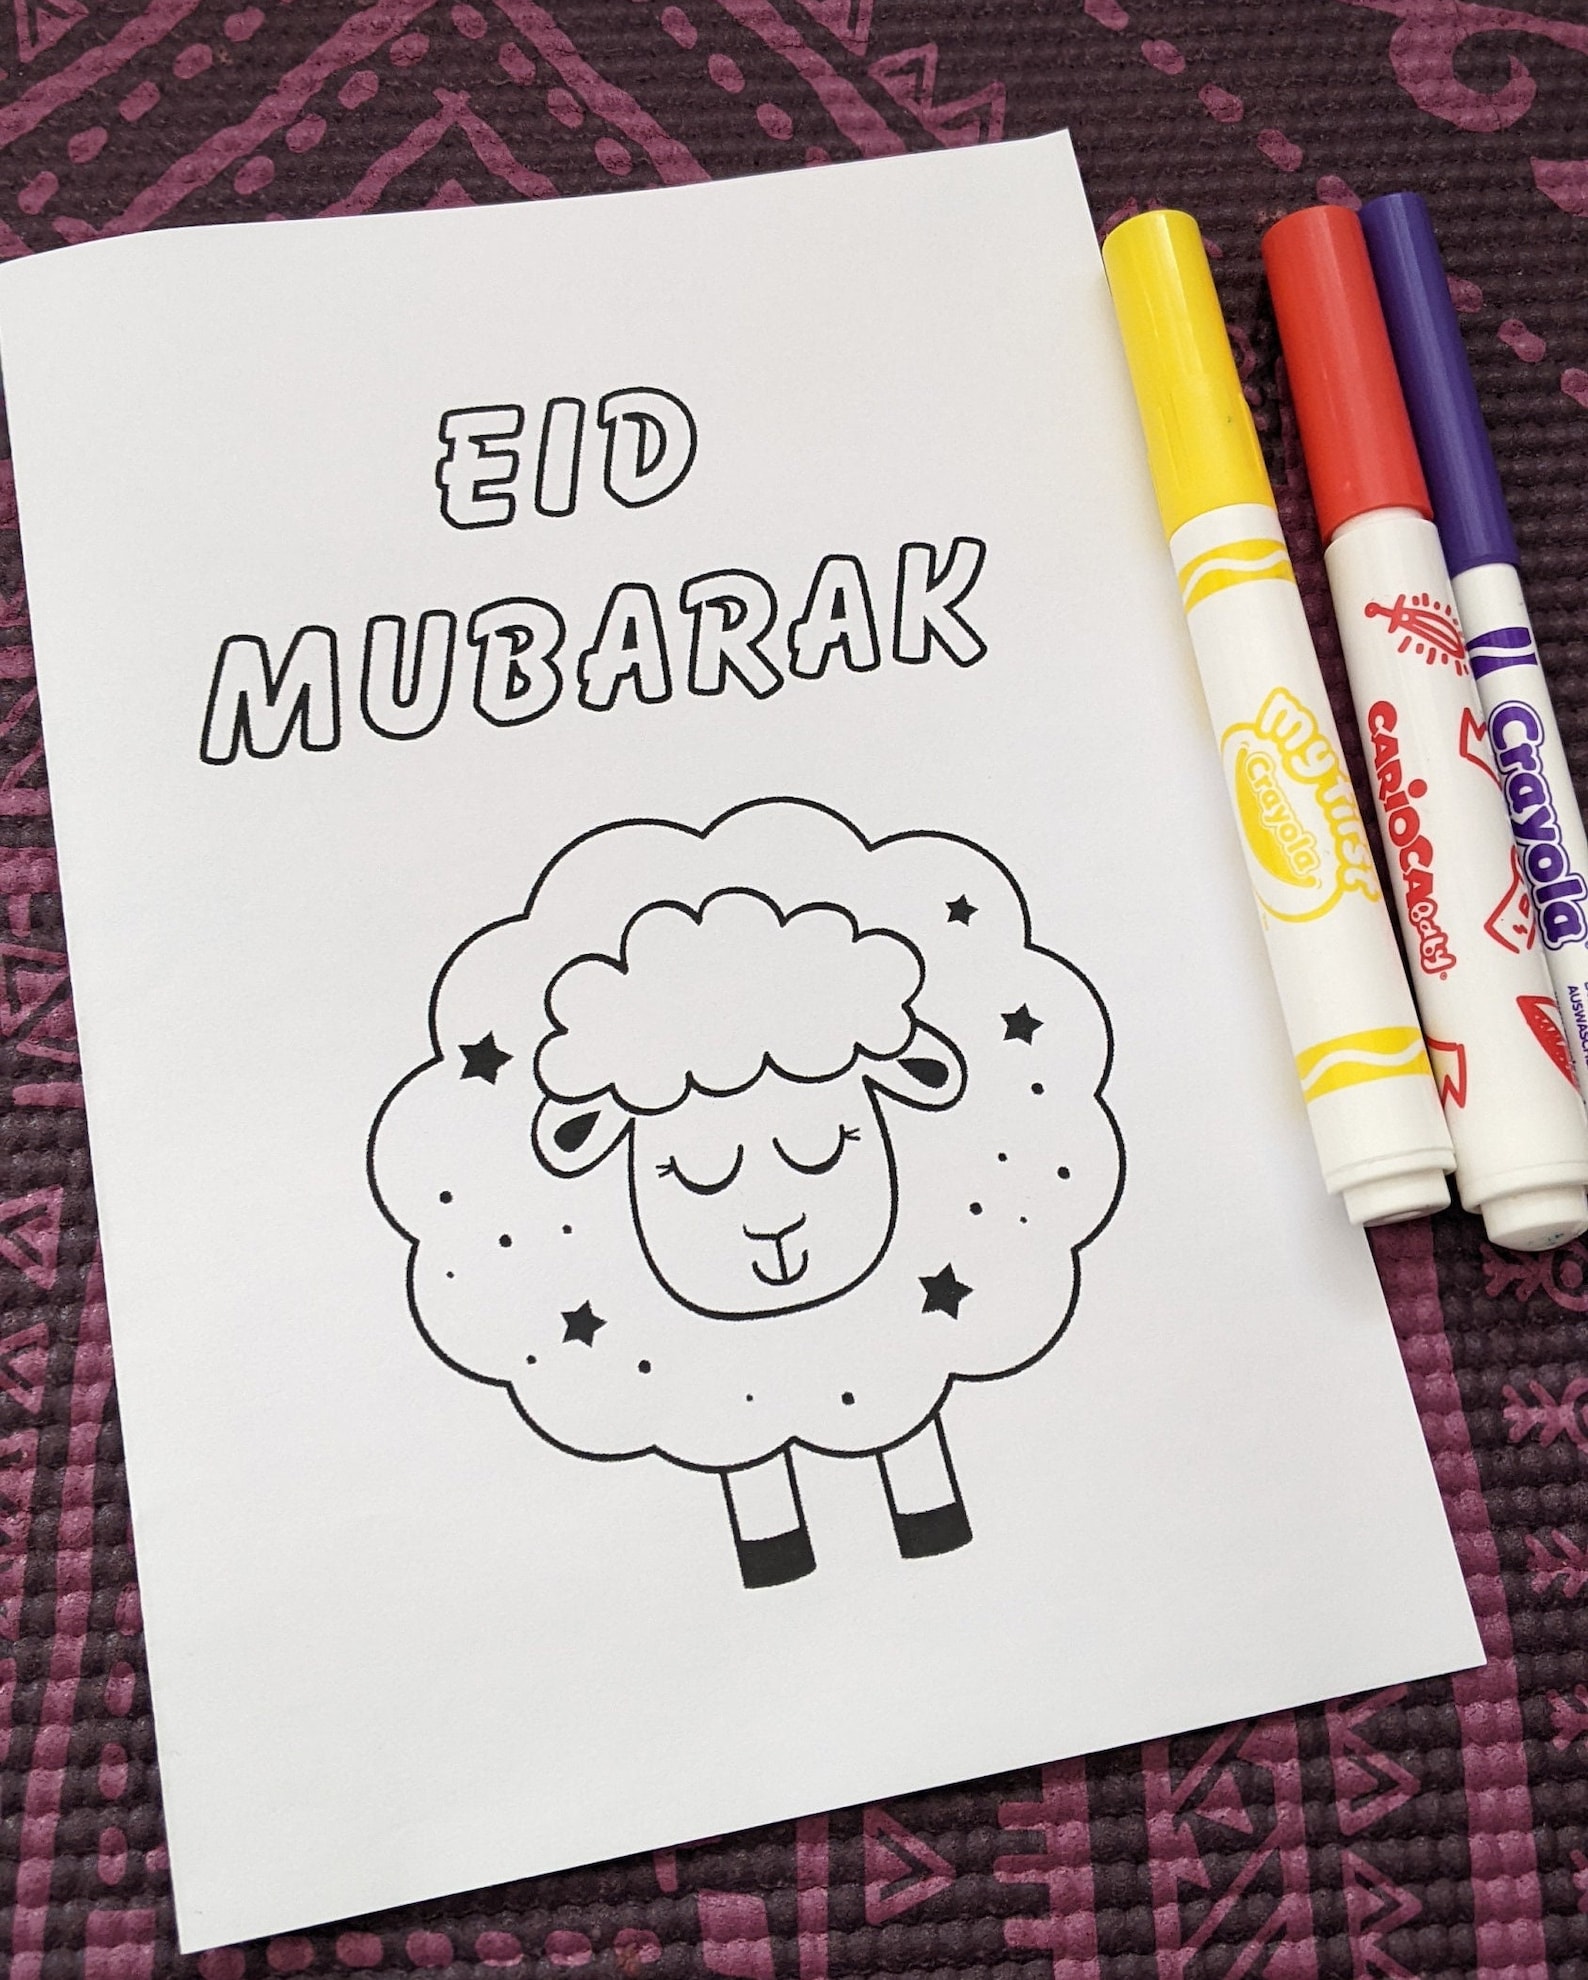 EID
MUBARAK
my first
Crayola
CARIOCA baby
Crayola